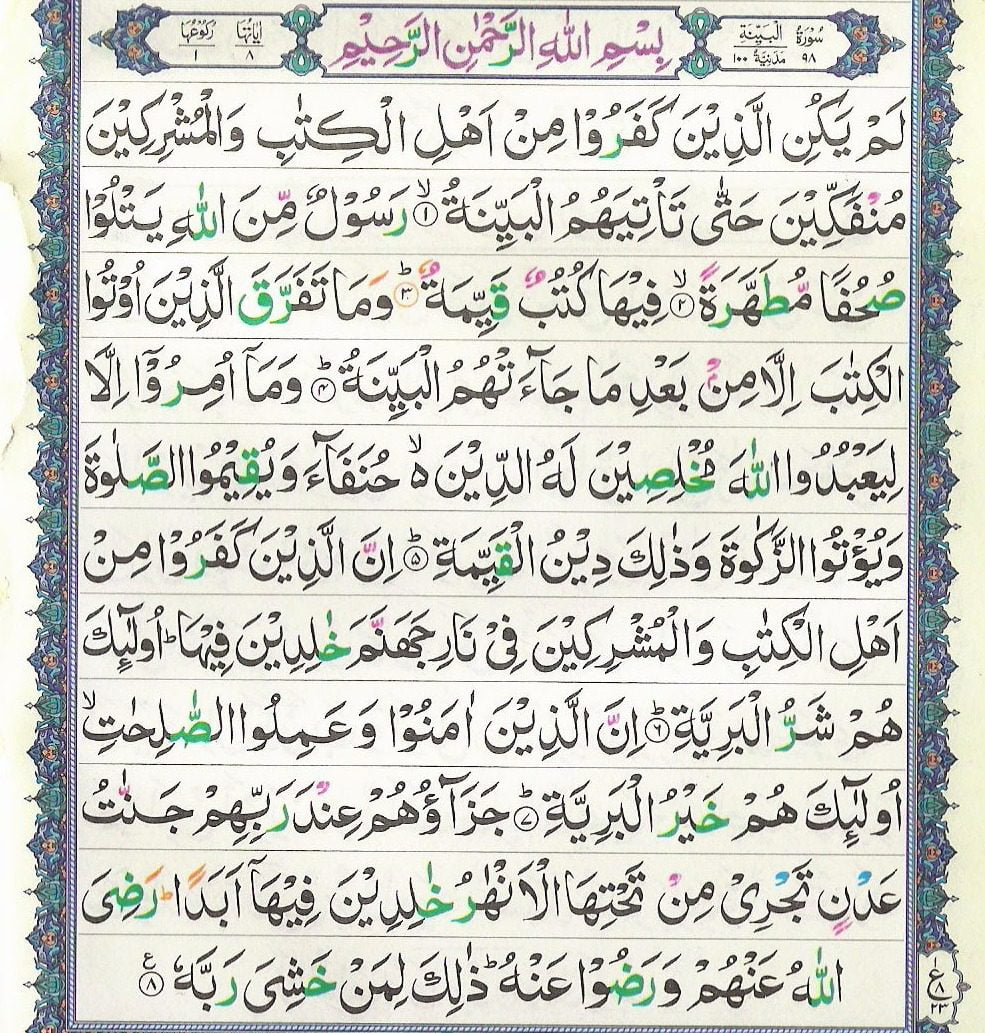 سُورَةُ الْبَيِّنَةِ ٩٨ مَدَنِيَّةٌ ١٠٠
بِسْمِ اللّٰهِ الرَّحْمٰنِ الرَّحِيْمِ
اٰيَاتُهَا ٨ رُكُوْعُهَا ١
لَمْ يَكُنِ الَّذِيْنَ كَفَرُوْا مِنْ اَهْلِ الْكِتٰبِ وَالْمُشْرِكِيْنَ
مُنْفَكِّيْنَ حَتّٰى تَاْتِيَهُمُ الْبَيِّنَةُ ۙ﴿۱﴾ رَسُوْلٌ مِّنَ اللّٰهِ يَتْلُوْا
صُحُفًا مُّطَهَّرَةً ۙ﴿۲﴾ فِيْهَا كُتُبٌ قَيِّمَةٌ ؕ﴿۳﴾ وَمَا تَفَرَّقَ الَّذِيْنَ اُوْتُوا
الْكِتٰبَ اِلَّا مِنْۢ بَعْدِ مَا جَآءَتْهُمُ الْبَيِّنَةُ ؕ﴿۴﴾ وَمَاۤ اُمِرُوْۤا اِلَّا
لِيَعْبُدُوا اللّٰهَ مُخْلِصِيْنَ لَهُ الدِّيْنَ ۙ۬ حُنَفَآءَ وَيُقِيْمُوا الصَّلٰوةَ
وَيُؤْتُوا الزَّكٰوةَ وَذٰلِكَ دِيْنُ الْقَيِّمَةِ ؕ﴿۵﴾ اِنَّ الَّذِيْنَ كَفَرُوْا مِنْ
اَهْلِ الْكِتٰبِ وَالْمُشْرِكِيْنَ فِيْ نَارِ جَهَنَّمَ خٰلِدِيْنَ فِيْهَا ؕ اُولٰٓئِكَ
هُمْ شَرُّ الْبَرِيَّةِ ؕ﴿۶﴾ اِنَّ الَّذِيْنَ اٰمَنُوْا وَعَمِلُوا الصّٰلِحٰتِ ۙ
اُولٰٓئِكَ هُمْ خَيْرُ الْبَرِيَّةِ ؕ﴿۷﴾ جَزَآؤُهُمْ عِنْدَ رَبِّهِمْ جَنّٰتُ
عَدْنٍ تَجْرِيْ مِنْ تَحْتِهَا الْاَنْهٰرُ خٰلِدِيْنَ فِيْهَاۤ اَبَدًا ؕ رَضِيَ
اللّٰهُ عَنْهُمْ وَرَضُوْا عَنْهُ ؕ ذٰلِكَ لِمَنْ خَشِيَ رَبَّهٗ ﴿۸﴾ ع
ع ٨ ٢٣